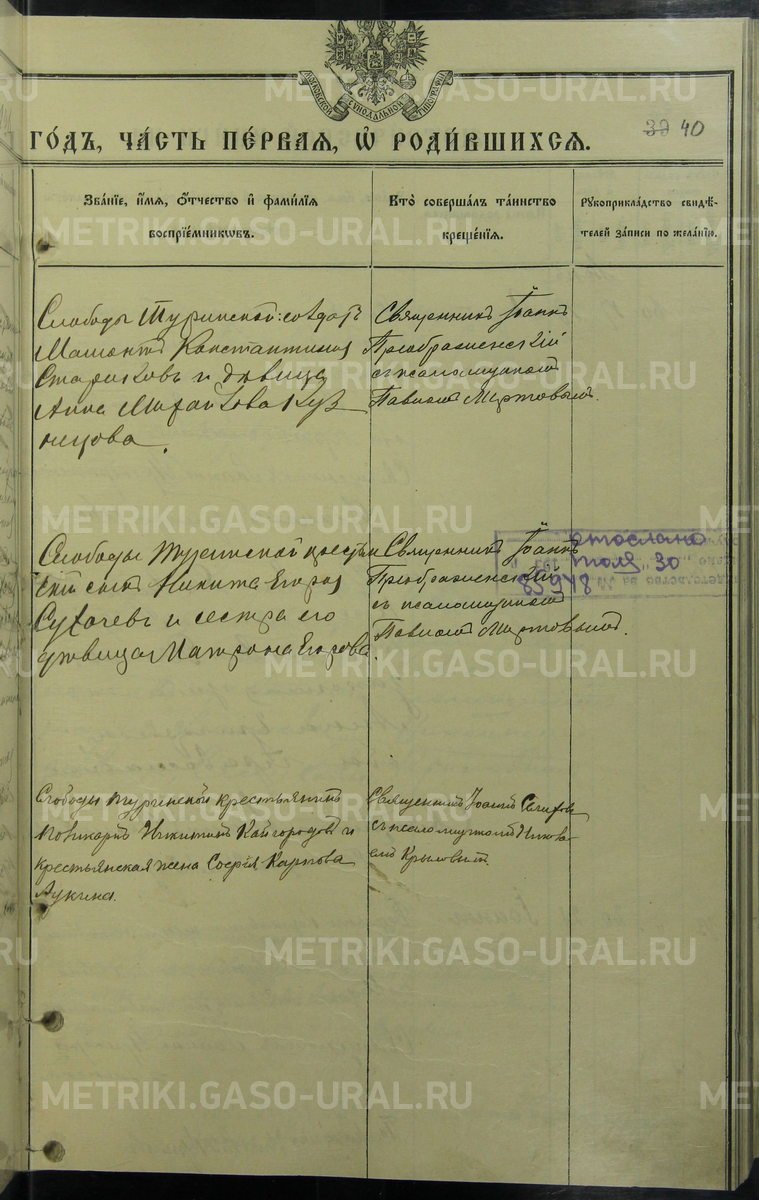 МОСКОВСКОЙ СѴНОДАЛЬНОЙ ТИПОГРАФІИ
39 40
ГО́ДЪ, ЧА́СТЬ ПЕ́РВАѦ, Ѡ҆ РОДИ́ВШИХСѦ.
Зва́нїе, и҆́мѧ, ѻ҆́тчество и҆ фами́лїѧ
воспрїе́мникѡвъ.
Кто̀ соверша́лъ та́инство
креще́нїѧ.
Рꙋкоприкла́дство свидѣ́-
телей за́писи по жела́нїю.
Слободы Туринской: солдатъ
Мамонтъ Константинов
Стариковъ и дѣвица
Анна Михайлова Куз
нецова.
Священникъ Іоаннъ
Преображенскій
съ псаломщикомъ
Павломъ Мартовымъ.
Слободы Туринской крестьян
скій сынъ Никита Егоров
Сухачевъ и сестра его
дѣвица Матрона Егорова
Священникъ Іоаннъ
Преображенскій
съ псаломщикомъ
Павломъ Мартовымъ.
отослано
июля 30
65948
Слободы Туринской крестьянинъ
Никитинъ Кайгородовъ и
крестьянская жена Софія Карпова
Лукина.
Священникъ Іоаннъ
съ псаломщикомъ Никола
емъ Крыловымъ.
METRIKI.GASO-URAL.RU